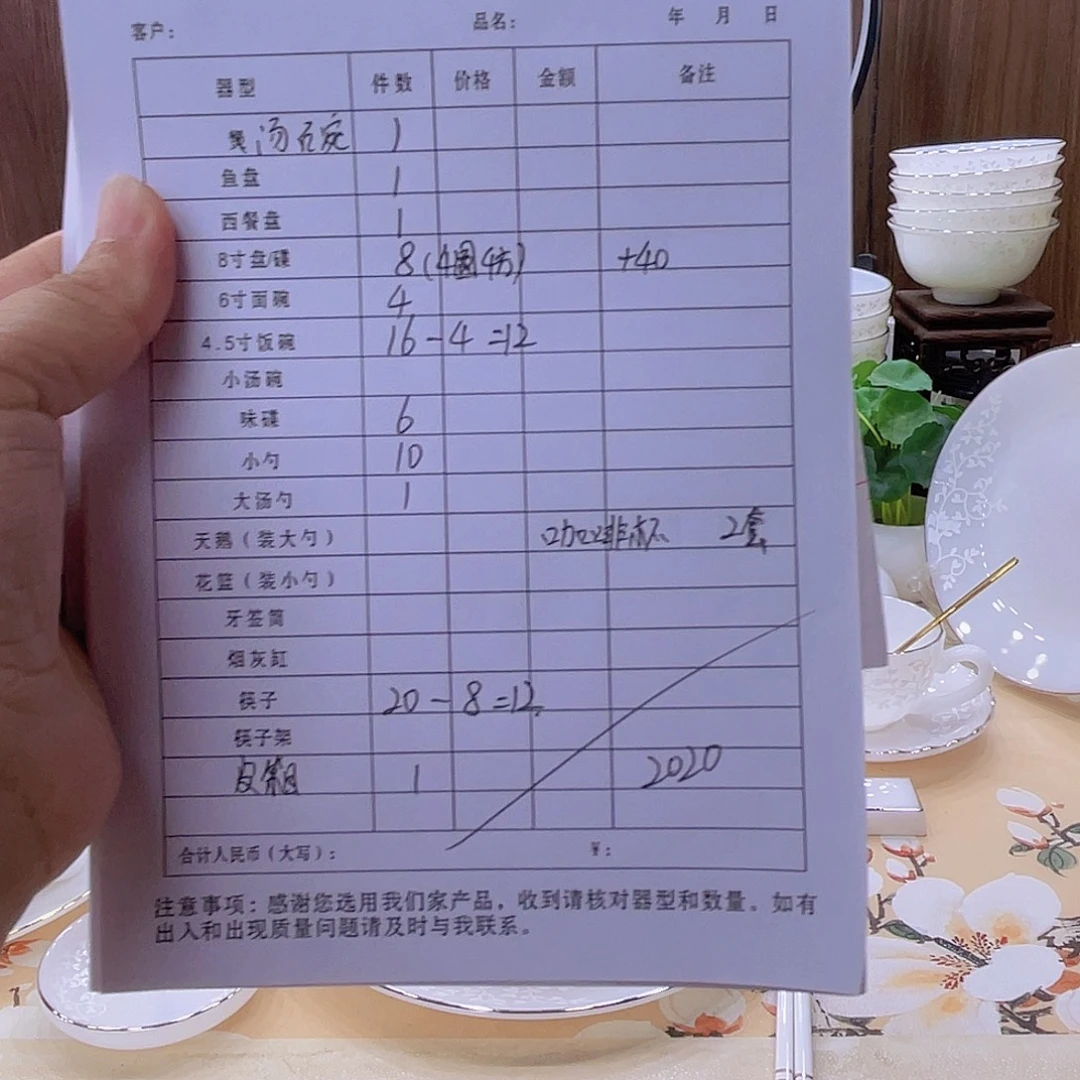 客户： 品名： 年 月 日
器型 件数 价格 金额 备注
煲 汤石完 1
鱼盘 1
西餐盘 1
8寸盘/碟 8(4圆4方) +40
6寸面碗 4
4.5寸饭碗 16-4=12
小汤碗
味碟 6
小勺 10
大汤勺 1
天鹅（装大勺） 咖啡杯 2套
花篮（装小勺）
牙签筒
烟灰缸
筷子 20-8=12
筷子架
1 2020
合计人民币（大写）： ¥：
注意事项：感谢您选用我们家产品，收到请核对器型和数量。如有
出入和出现质量问题请及时与我联系。